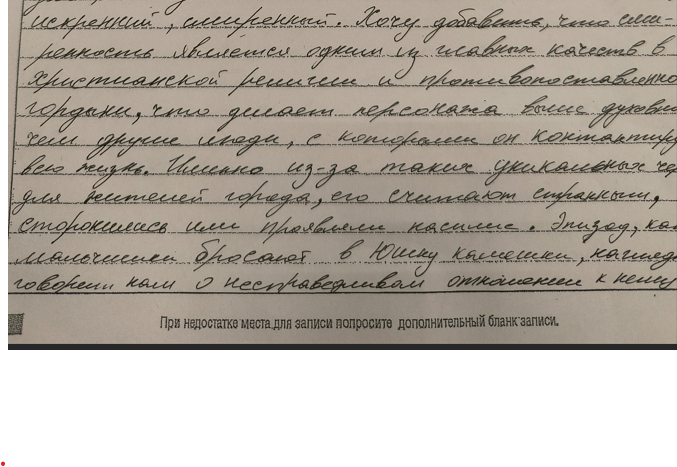 искренний, смиренный. Хочу добавить, что сми-
ренность является одним из главных качеств в
христианской религии и противопоставленно
гордыни, что делает персонажа выше духовн
чем другие люди, с которыми он контактиру
всю жизнь. Именно из-за таких уникальных че
для жителей города, его считают странным,
сторонились или проявляли насилие. Эпизод, ка
мальчишки бросают в Юшку камешки, нагляд
говорит нам о несправедливом отношении к нему
При недостатке места для записи попросите дополнительный бланк записи.